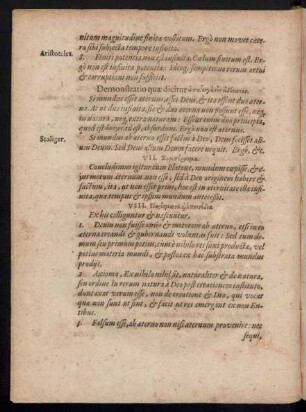 nitum magnitudine finitæ
Ergò non movet cæte-
ra sibi subjecta tempore infinito.
Aristoteles. 2. Finiti potentia non est infinita. Cœlum finitum est. Er-
gò non est infinitæ potentiæ: Ideoq; semper in rerum ortui
& corruptioni non sufficit.
Demonstratio quæ dicitur
Si mundus esset æternus, esset Deus, & ita essent duo æter-
na. At ut duo infinita, sic & duo æterna non possunt esse, neq; in
natura, neq; extra naturam: Essent enim duo principia,
quod est absurdum. Ergò non est æternus.
Scaliger. Si mundus ab æterno esset factus à Deo, Deus fecisset ali-
um Deum. Sed Deus alium Deum facere nequit. Ergò, &c.
VII.
Concludimus igitur cum Platone, mundum cœpisse, & cę-
& à Deo originem habere &
factum, ita, ut non esset prius, hoc est in æternitate illa infi-
nita, quæ tempus & mundum antecessit.
VIII.
Ex his colliguntur & nascuntur.
1. Deum non fuisse antè &
ab æterno, etsi in æ-
& gubernandi voluntas fuit: Sed tum de-
mum seu primùm potius, cum è nihilo res sunt productæ, vel
potius materia mundi, & postea ex hac substrata mundus
prodijt.
2. Axioma, Ex nihilo nihil fit, naturaliter & de natura,
seu ordine in rerum natura à Deo post creationem instituto,
duntaxat verum esse, non de creatione & Deo, qui vocat
quæ non sunt ut sint, & facit ut res emergant ex non En-
tibus.
3. Falsum esse, ab æterno non nisi æternum provenire: nec
sequi,